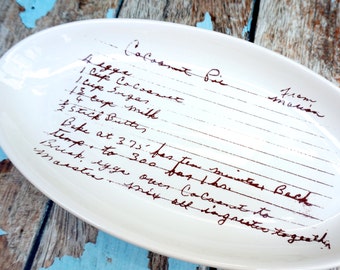 Cocoanut Pie
from
Marion
4 eggs
1 Cup Cocoanut
1 Cup Sugar
cup milk
Stick Butter
Bake at 375 for ten minutes. Back
temp. to 300 for 1 hr
Break eggs over Cocoanut to
Moisten. Mix all ingredients together